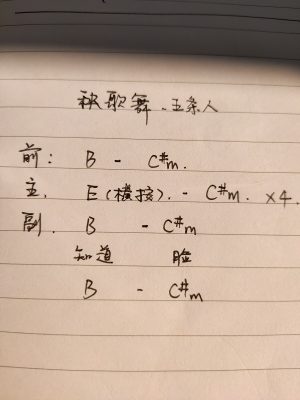 秧歌舞、五条人
前: B - C#m.
主. E(横按). - C#m. ×4.
副. B - C#m
知道 脸
B - C#m